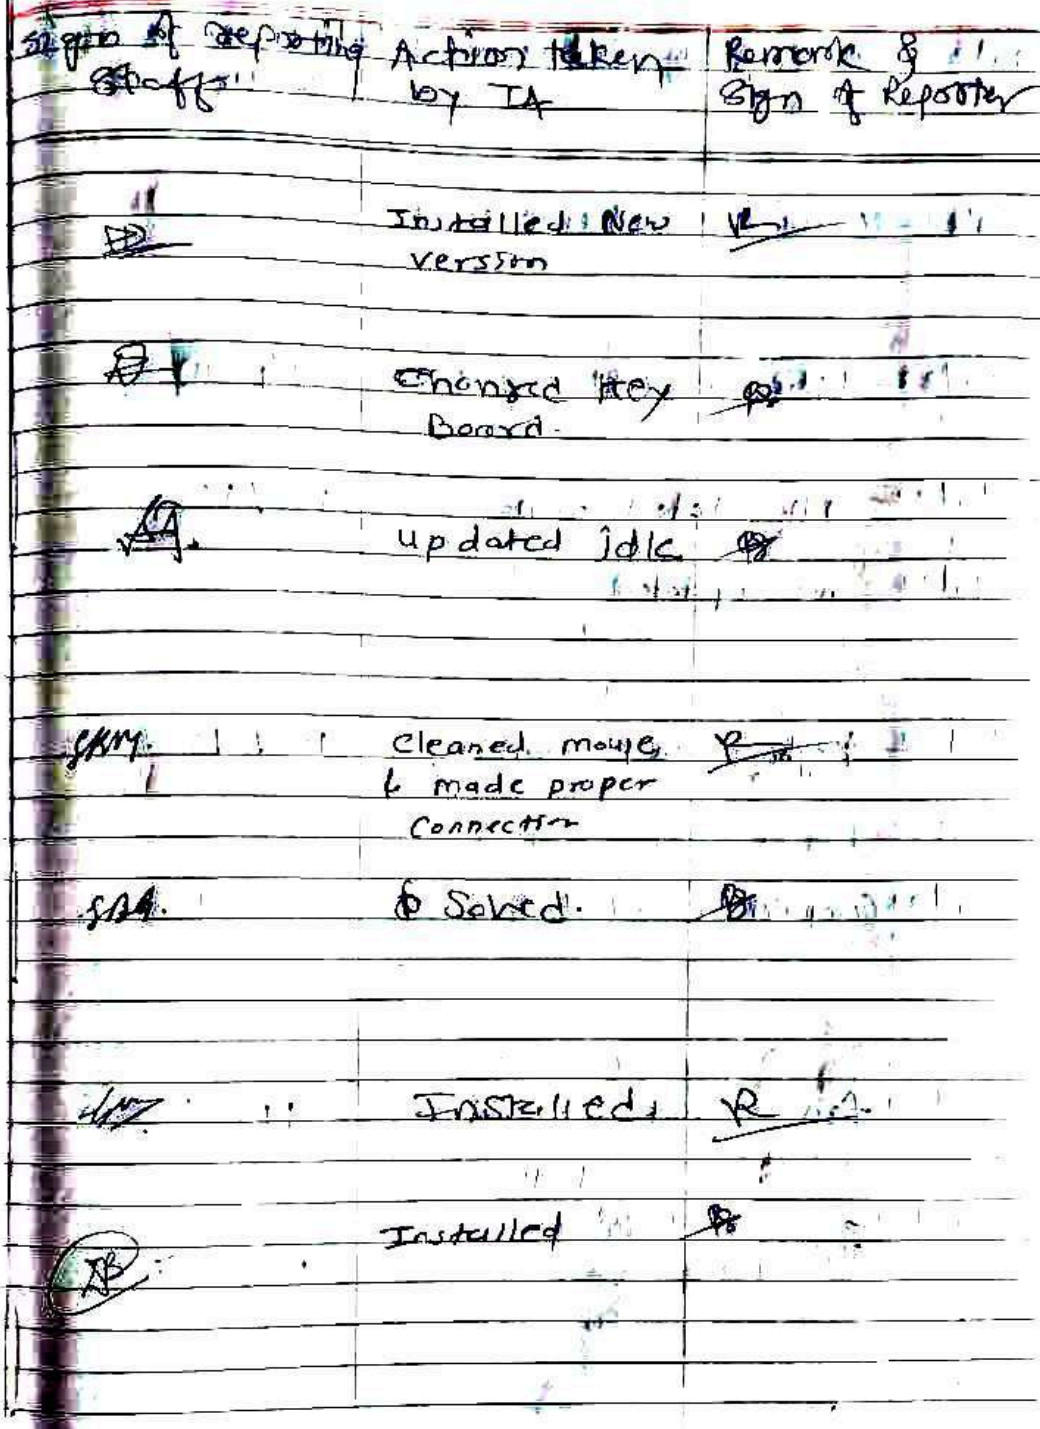 Sign of reporting Action taken Remark &
Staff by IA Sign of Reporter
Installed New
version
Changed Key
Board.
updated jdk
SKM. Cleaned mouse
& made proper
Connection
Solved.
Installed
Installed
AB